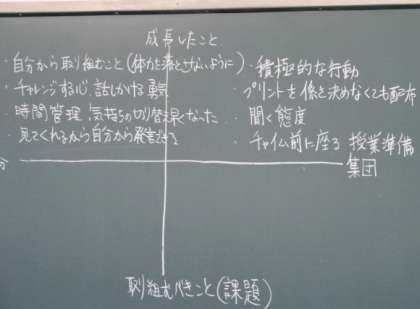 成長したこと
・自分から取り組むこと(体力を落とさないように)
・チャレンジする心 話しかける勇気
・時間管理 気持ちの切り替え早くなった
・見てくれるから自分から発言
・積極的な行動
・プリントを係を決めなくても配布
・聞く態度
・チャイム前に座る 授業準備
分
集団
取り組むべきこと(課題)